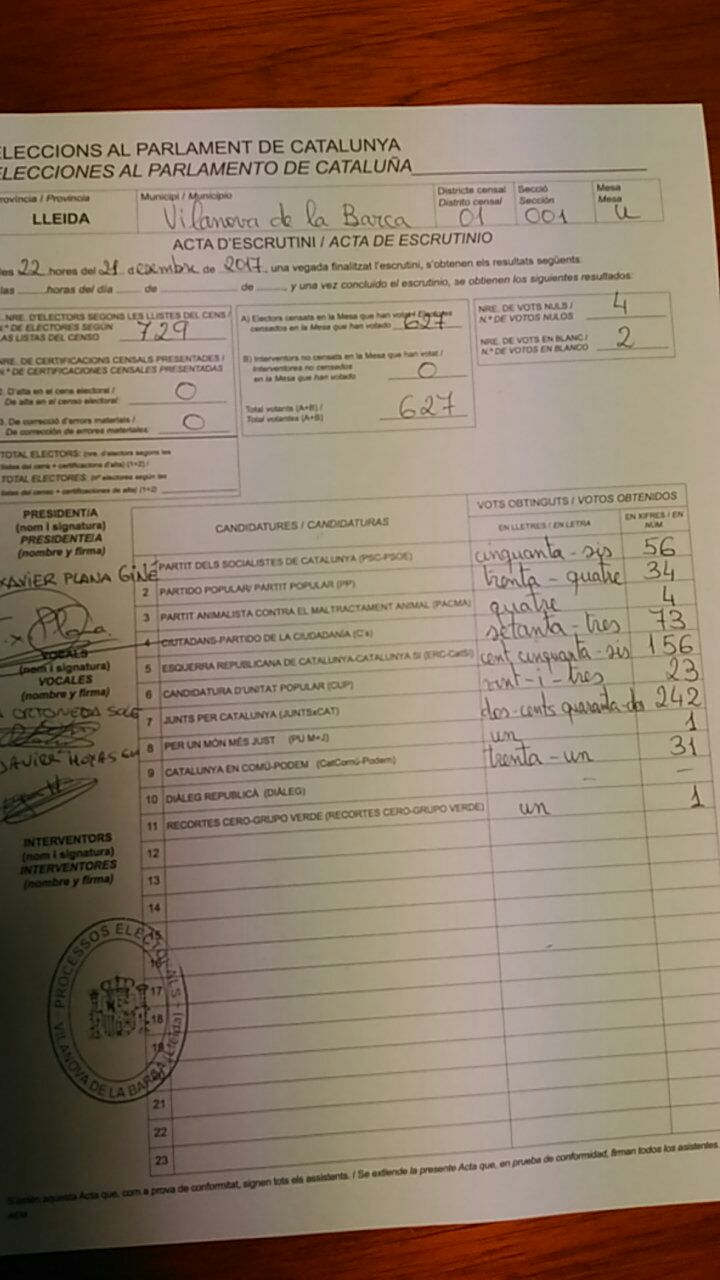 ELECCIONS AL PARLAMENT DE CATALUNYA
ELECCIONES AL PARLAMENTO DE CATALUÑA
Província / Provincia
LLEIDA
Municipi / Municipio
Vilanova de la Barca
Districte censal
Distrito censal
01
Secció
Sección
001
Mesa
Mesa
U
ACTA D'ESCRUTINI / ACTA DE ESCRUTINIO
les 22 hores del 21 desembre de 2017, una vegada finalitzat l'escrutini, s'obtenen els resultats següents:
las horas del día de de , y una vez concluido el escrutinio, se obtienen los siguientes resultados:
NRE. D'ELECTORS SEGONS LES LLISTES DEL CENS /
N.º DE ELECTORES SEGÚN
LAS LISTAS DEL CENSO 729
NRE. DE CERTIFICACIONS CENSALS PRESENTADES /
N.º DE CERTIFICACIONES CENSALES PRESENTADAS
2. D'alta en el cens electoral /
De alta en el censo electoral: 0
3. De correcció d'errors materials /
De corrección de errores materiales: 0
TOTAL ELECTORS: (nre. d'electors segons les
llistes del cens + certificacions d'alta) (1+2) /
TOTAL ELECTORES: (nº electores según las
listas del censo + certificaciones de alta) (1+2)
A) Electors censats en la Mesa que han votat / Electores
censados en la Mesa que han votado 627
B) Interventors no censats en la Mesa que han votat /
Interventores no censados
en la Mesa que han votado 0
Total votants (A+B) /
Total votantes (A+B) 627
NRE. DE VOTS NULS /
N.º DE VOTOS NULOS 4
NRE. DE VOTS EN BLANC /
N.º DE VOTOS EN BLANCO 2
PRESIDENT/A
(nom i signatura)
PRESIDENTE/A
(nombre y firma)
XAVIER PLANA GINÉ
VOCALS
(nom i signatura)
VOCALES
(nombre y firma)
ORTONEDA SOLÉ
JAVIER HOYAS
INTERVENTORS
(nom i signatura)
INTERVENTORES
(nombre y firma)
CANDIDATURES / CANDIDATURAS
VOTS OBTINGUTS / VOTOS OBTENIDOS
EN LLETRES / EN LETRA
EN XIFRES / EN NÚM.
PARTIT DELS SOCIALISTES DE CATALUNYA (PSC-PSOE) cinquanta-sis 56
2 PARTIDO POPULAR/ PARTIT POPULAR (PP) trenta-quatre 34
3 PARTIT ANIMALISTA CONTRA EL MALTRACTAMENT ANIMAL (PACMA) quatre 4
4 CIUTADANS-PARTIDO DE LA CIUDADANÍA (C's) setanta-tres 73
5 ESQUERRA REPUBLICANA DE CATALUNYA-CATALUNYA SÍ (ERC-CatSí) cent cinquanta-sis 156
6 CANDIDATURA D'UNITAT POPULAR (CUP) vint-i-tres 23
7 JUNTS PER CATALUNYA (JUNTSxCAT) dos-cents quaranta-dos 242
8 PER UN MÓN MÉS JUST (PU M+J) un 1
9 CATALUNYA EN COMÚ-PODEM (CatComú-Podem) trenta-un 31
10 DIÀLEG REPUBLICÀ (DIÀLEG) - -
11 RECORTES CERO-GRUPO VERDE (RECORTES CERO-GRUPO VERDE) un 1
12
13
14
15
16
17
18
19
21
22
23
PROCESSOS ELECTORALS - VILANOVA DE LA BARCA (Lleida)
S'estén aquesta Acta que, com a prova de conformitat, signen tots els assistents. / Se extiende la presente Acta que, en prueba de conformidad, firman todos los asistentes.